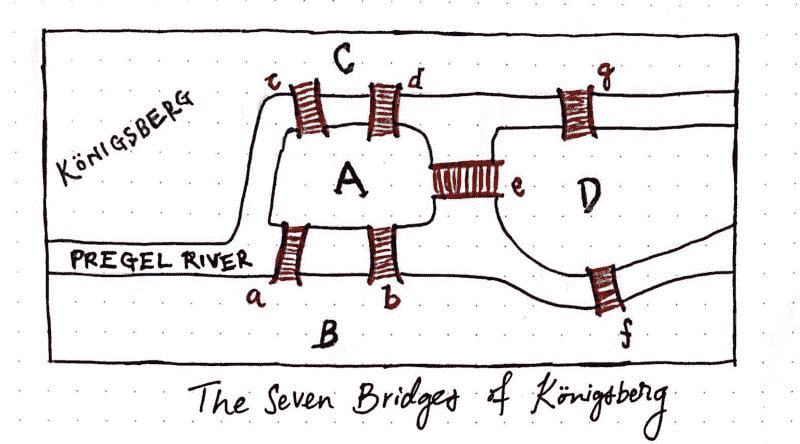 C
c d g
KÖNIGSBERG
A
e D
PREGEL RIVER
a b
B f
The Seven Bridges of Königsberg